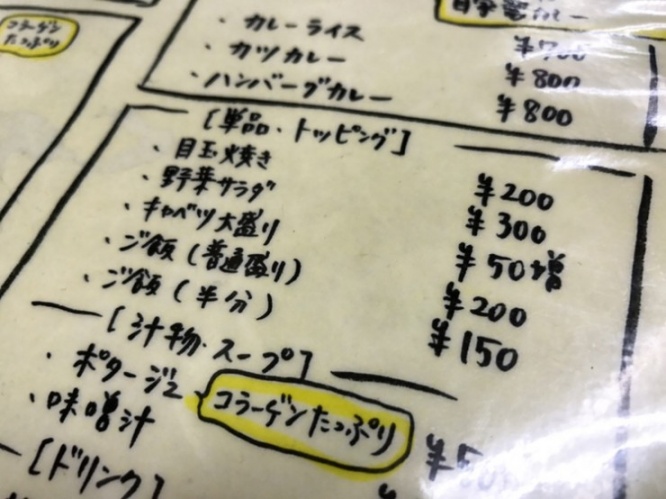 コラーゲン
たっぷり
・カレーライス ¥700
・カツカレー ¥800
・ハンバーグカレー ¥800
[単品・トッピング]
・目玉焼き ¥200
・野菜サラダ ¥300
・キャベツ大盛り ¥50増
・ご飯(普通盛り) ¥200
・ご飯(半分) ¥150
[汁物・スープ]
・ポタージュ コラーゲンたっぷり
・味噌汁
[ドリンク]